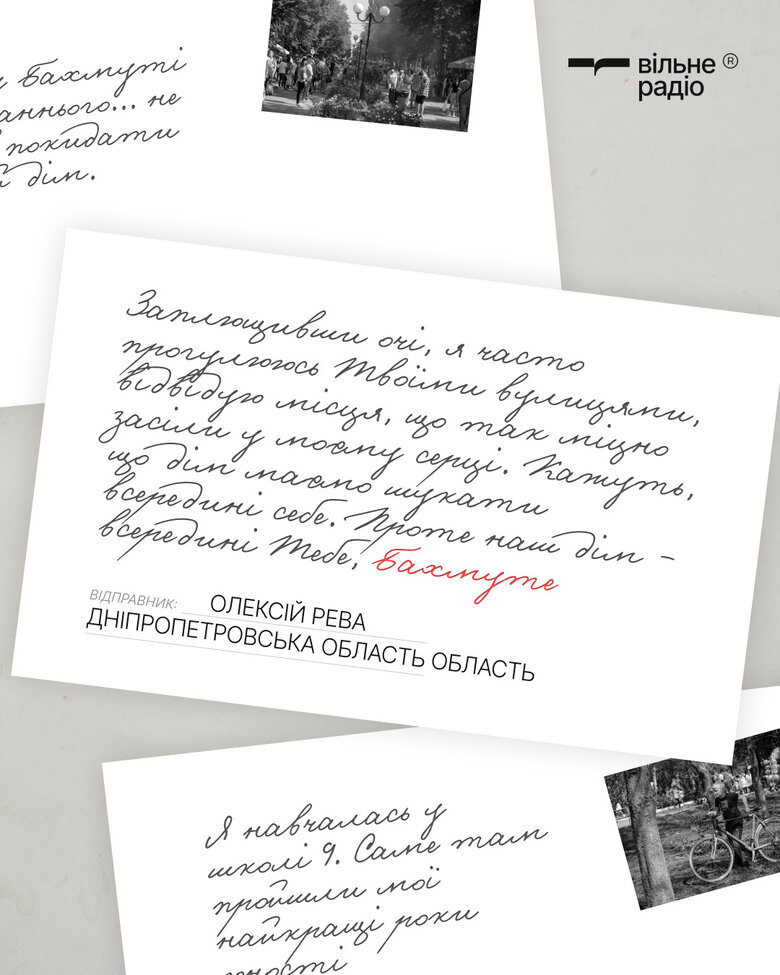 вільне ®
радіо
Бахмуті
не
покидати
дім.
Заплющивши очі, я часто
прогулююсь Твоїми вулицями,
відвідую місця, що так міцно
засіли у моєму серці. Кажуть,
що дім маємо шукати
всередині себе. Проте наш дім –
всередині Тебе, Бахмуте
ВІДПРАВНИК: ОЛЕКСІЙ РЕВА
ДНІПРОПЕТРОВСЬКА ОБЛАСТЬ ОБЛАСТЬ
Я навчалась у
школі 9. Саме там
пройшли мої
найкращі роки